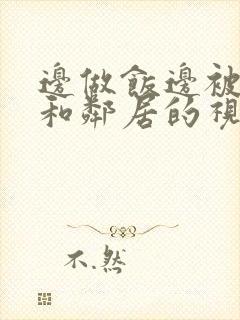 邊做飯邊被
和鄰居的視
不.然